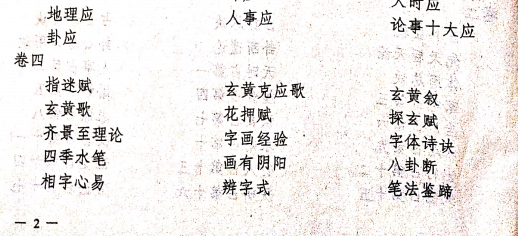 地理应 人事应 天时应
卦应 论事十大应
卷四
指迷赋 玄黄克应歌 玄黄叙
玄黄歌 花押赋 探玄赋
齐景至理论 字画经验 字体诗诀
四季水笔 画有阴阳 八卦断
相字心易 辨字式 笔法鉴蹄
— 2 —